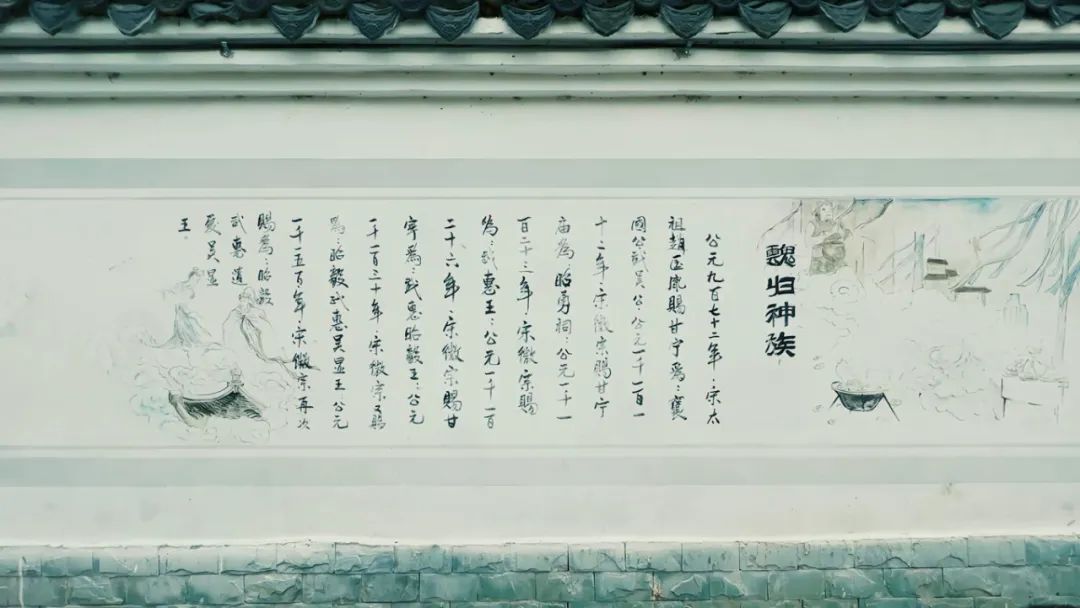 魂归神族
公元九百七十二年：宋太
祖趙匡胤賜甘宁為：褒
國公武灵公：公元一千一百一
十二年：宋徽宗賜甘宁
庙為：昭勇祠：公元一千一
百二十三年：宋徽宗賜
為：武惠王：公元一千一百
二十六年：宋徽宗賜甘
宁為：武惠昭毅王：公元
一千一百三十年：宋徽宗又賜
為：昭毅武惠灵显王：公元
一千一五百年：宋徽宗再次
賜為：昭毅
武惠遺
爱灵显
王。